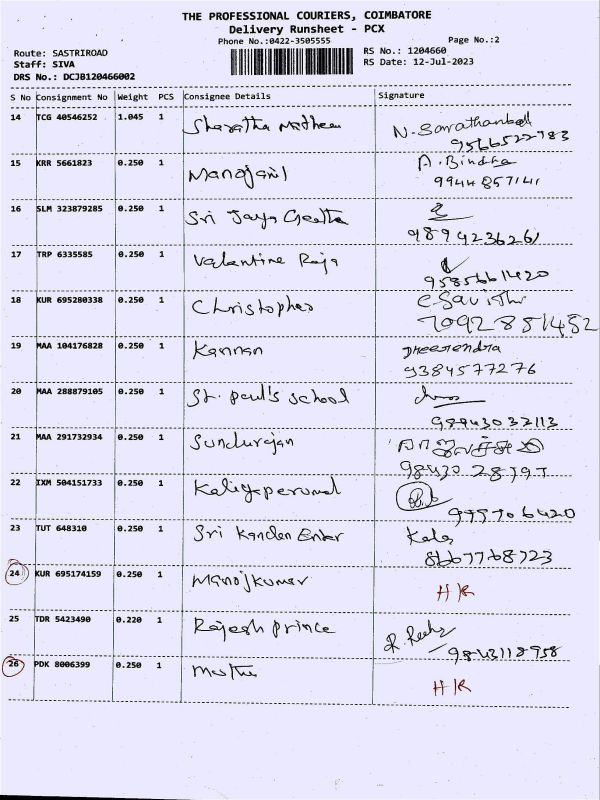 THE PROFESSIONAL COURIERS, COIMBATORE
Delivery Runsheet - PCX
Phone No.:0422-3505555
Page No.:2
Route: SASTRIROAD
RS No.: 1204660
Staff: SIVA
RS Date: 12-Jul-2023
DRS No.: DCJB120466002
S No Consignment No Weight PCS Consignee Details Signature
14 TCG 40546252 1.045 1 N. Sarathanbal
9566522783
15 KRR 5661823 0.250 1 Manojanil A. Bindha
9944857141
16 SLM 323879285 0.250 1 Sri Jaya Geetha
9894236261
17 TRP 6335585 0.250 1 Valantine Raja
9585661420
18 KUR 695280338 0.250 1 Christopher C. Savithri
7092881452
19 MAA 104176828 0.250 1 Kannan Dheerendra
9384577276
20 MAA 288879105 0.250 1 St. Paul's School
98943032113
21 MAA 291732934 0.250 1 Sundurajan
22 IXM 504151733 0.250 1 Kaliyaperumal
995706420
23 TUT 648310 0.250 1 Sri Kanden Enter Kala
8667768723
24 KUR 695174159 0.250 1 Manojkumar HR
25 TDR 5423490 0.220 1 Rajesh Prince
9843118958
26 PDK 8006399 0.250 1 Muthu HR